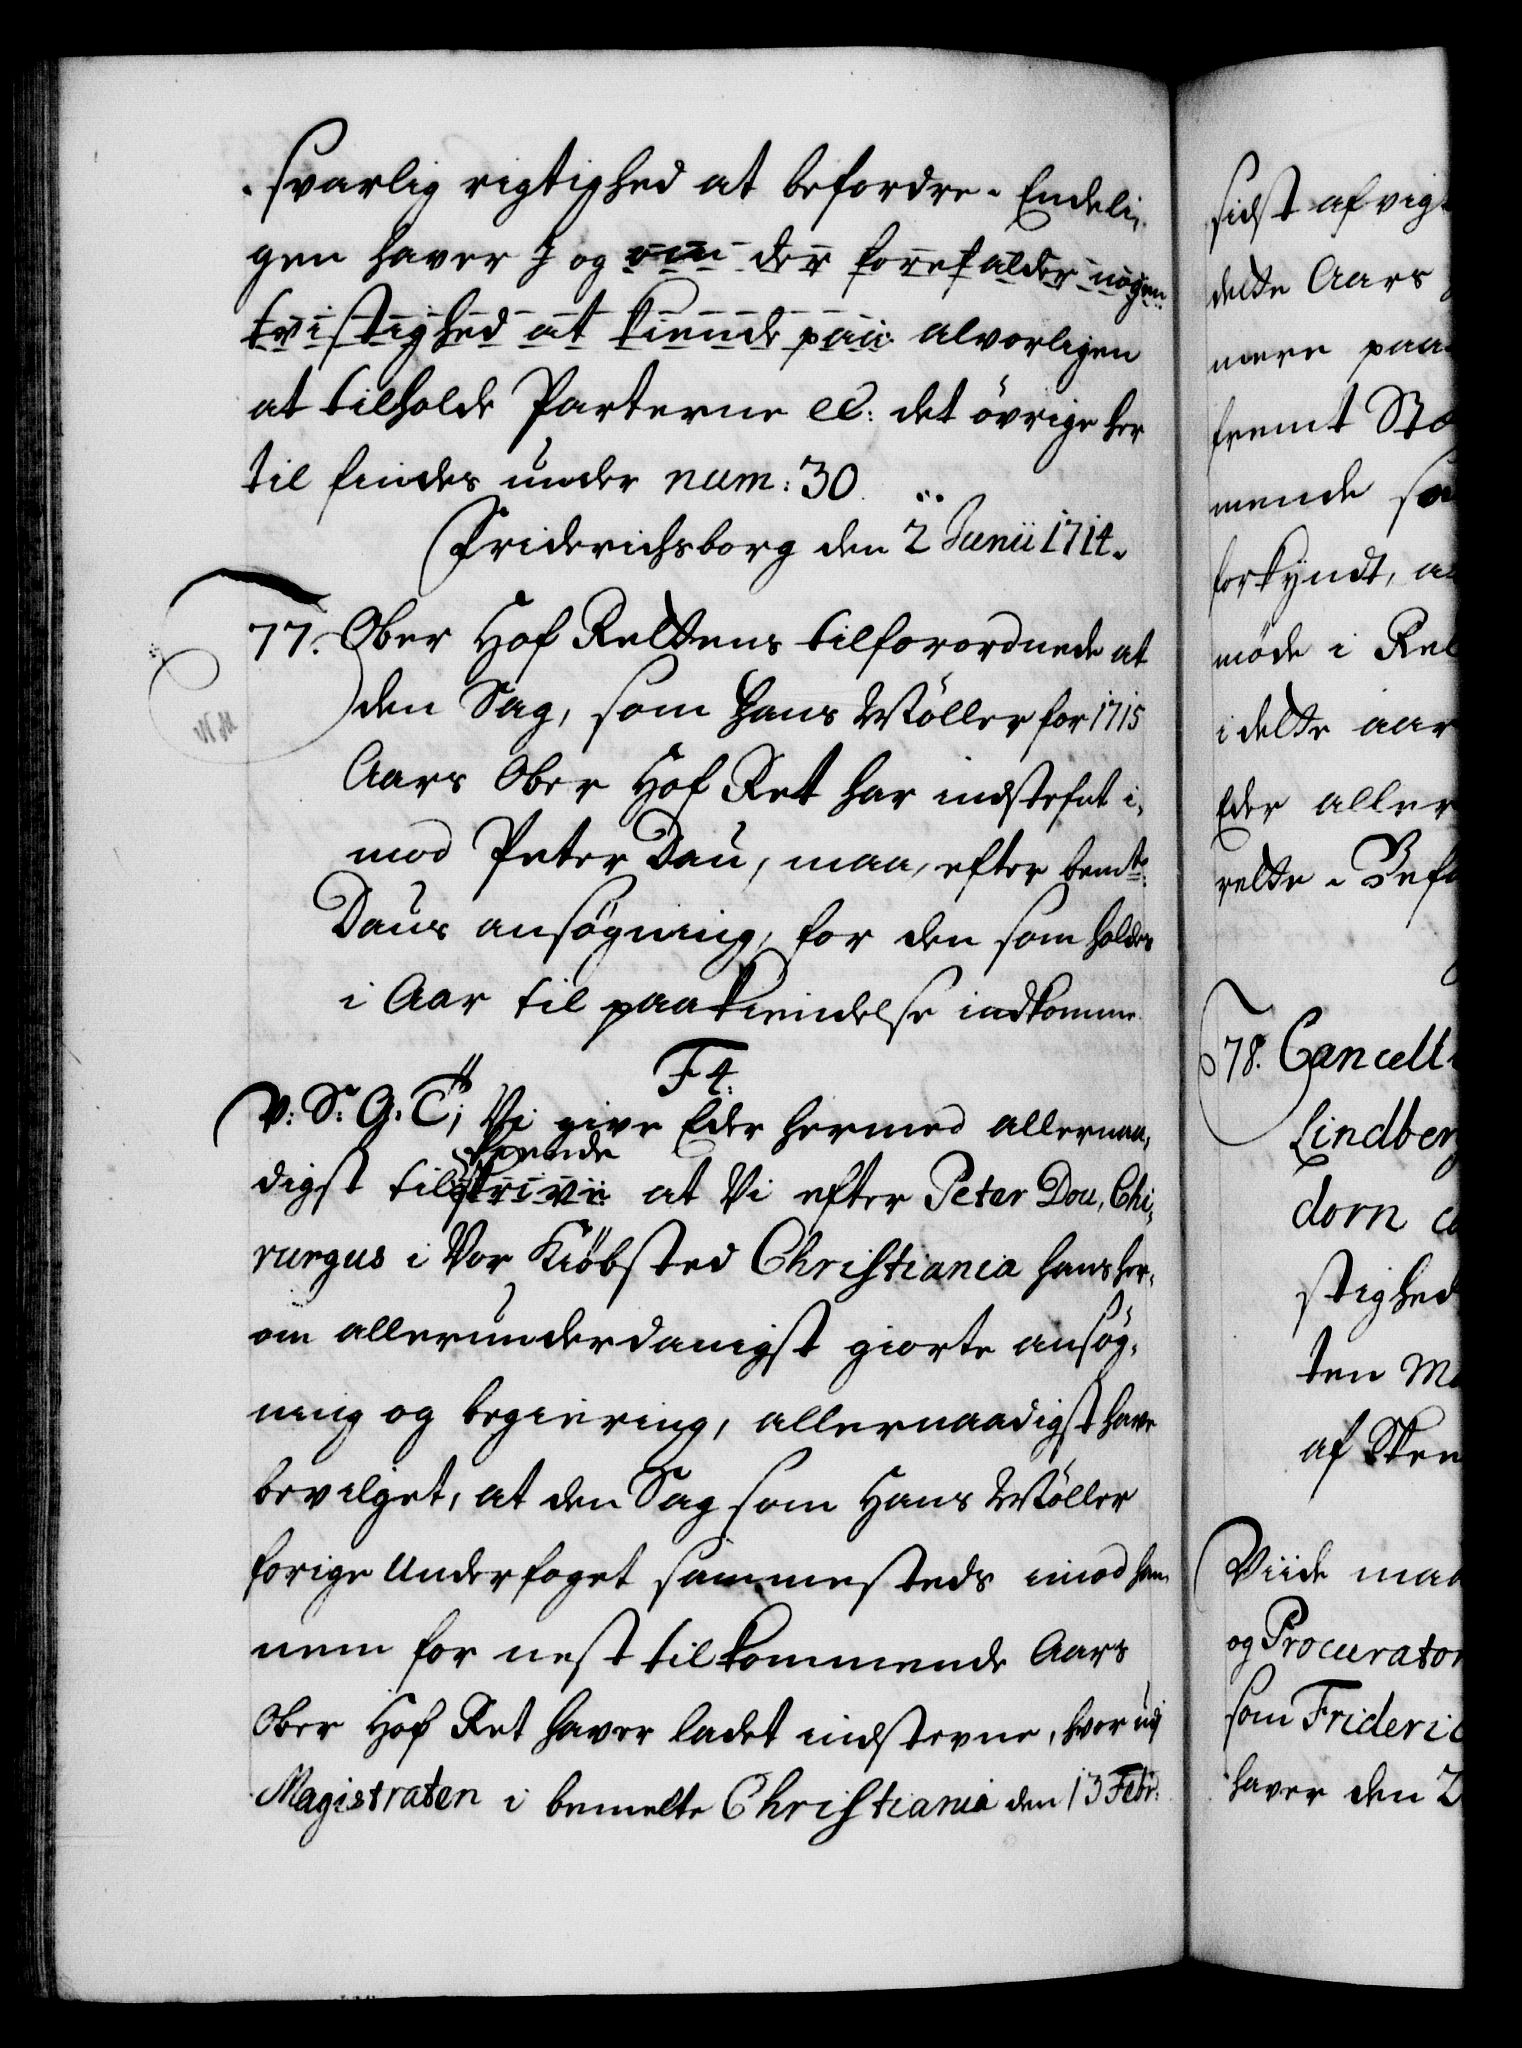 svarlig rigtighed at befordre. Endeli,
gen haver I og om der forefalder nogen
tvistighed at kiende paa alvorligen
at tilholde Parterne etc: det övrige her
til findes under num: 30.
Friderichsborg den 2 Junii 1714.
77. Ober Hof Rettens tilforordnede at
den Sag, som Hans Möller for 1715
Aars Ober Hof Ret har indstefnt i,
mod Peter Dau, maa, efter bemte
Daus ansögning, for den som holdes
i Aar til paakiendelse indkomme
F4:
V: S: G: T; Vi give Eder hermed allernaa,
kiende
digst til at Vi efter Peter Dou, Chi,
rurgus i Vor Kiöbsted Christiania hans her,
om allerunderdanigst giorte ansög,
ning og begiering, allernaadigst have
bevilget, at den Sag som Hans Möller
forige Underfoget sammesteds imod ham
nem for nest tilkommende Aars
Ober Hof Ret haver ladet indstevne, hvor udj
Magistraten i bemelte Christiania den 13 Febr:
sidst afvig
dette Aars
mere paa
fremt
mende
forkyndt, a
möde i Ret
i dette aar
Eder aller
rette. Bef
78. Cancell
Lindber
dorn
stighed
ten M
af
Viide maa
og Procurator
som Frideric
haver den 2